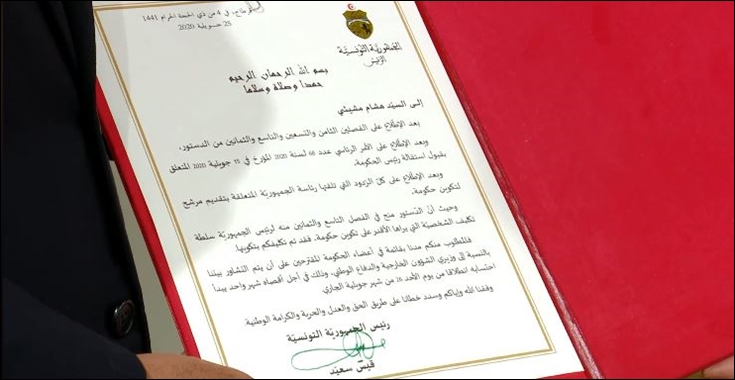 قرطاج، في 4 من ذي الحجة الحرام 1441
25 جويلية 2020
الجمهورية التونسية
الرئيس
بسم الله الرحمان الرحيم
حمدا وصلاة وسلاما
إلى السيد هشام مشيشي
بعد الإطلاع على الفصلين الثامن والتسعين والتاسع والثمانين من الدستور،
وبعد الإطلاع على الأمر الرئاسي عدد 68 لسنة 2020 المؤرخ في 15 جويلية 2020 المتعلق
بقبول استقالة رئيس الحكومة،
وبعد الإطلاع على كل الردود التي تلقتها رئاسة الجمهورية المتعلقة بتقديم مرشح
لتكوين حكومة،
وحيث أن الدستور منح في الفصل التاسع والثمانين منه لرئيس الجمهورية سلطة
تكليف الشخصية التي يراها الأقدر على تكوين حكومة، فقد تم تكليفكم بتكوينها.
فالمطلوب منكم مدنا بقائمة في أعضاء الحكومة المقترحين على أن يتم التشاور بيننا
بالنسبة إلى وزيري الشؤون الخارجية والدفاع الوطني، وذلك في أجل أقصاه شهر واحد يبدأ
احتسابه انطلاقا من يوم الأحد 26 من شهر جويلية الجاري
وفقنا الله وإياكم وسدد خطانا على طريق الحق والعدل والحرية والكرامة الوطنية
رئيس الجمهورية التونسية
قيس سعيد